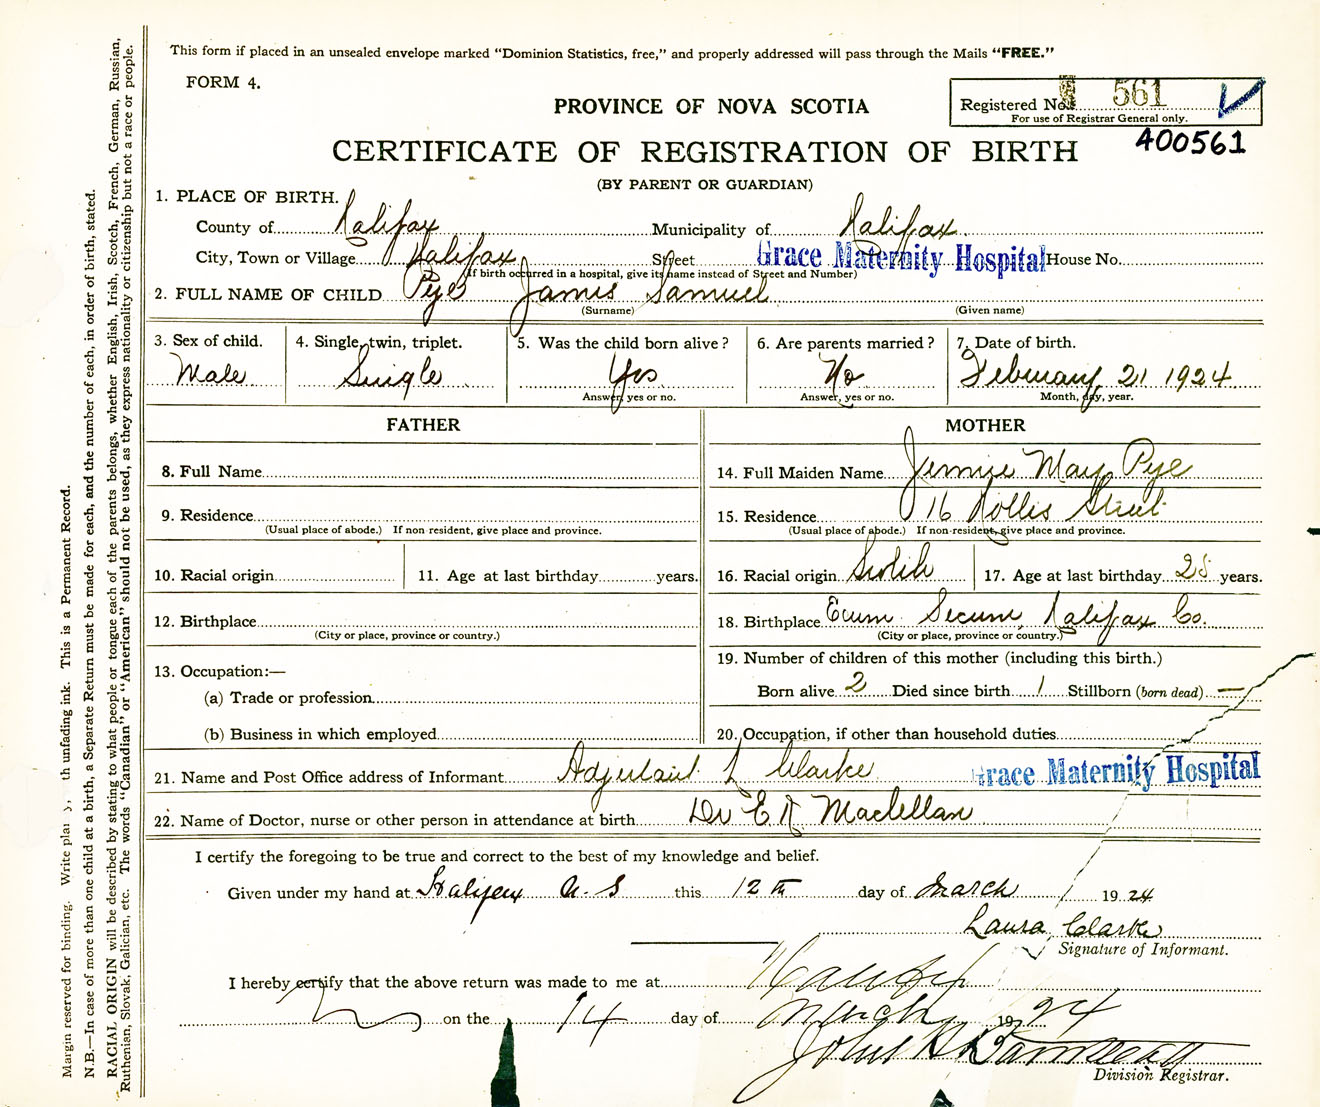 This form if placed in an unsealed envelope marked "Dominion Statistics, free," and properly addressed will pass through the Mails "FREE."
FORM 4.
Registered No. 561
For use of Registrar General only.
400561
PROVINCE OF NOVA SCOTIA
CERTIFICATE OF REGISTRATION OF BIRTH
(BY PARENT OR GUARDIAN)
1. PLACE OF BIRTH.
County of Halifax Municipality of Halifax
City, Town or Village Halifax Street Grace Maternity Hospital House No.
(If birth occurred in a hospital, give its name instead of Street and Number)
2. FULL NAME OF CHILD Pye James Samuel
(Surname) (Given name)
3. Sex of child. 4. Single, twin, triplet. 5. Was the child born alive? 6. Are parents married? 7. Date of birth.
Male Single Yes No February 21 1924
Answer, yes or no. Answer, yes or no. Month, day, year.
FATHER MOTHER
8. Full Name 14. Full Maiden Name Jennie May Pye
9. Residence 15. Residence 16 Hollis Street
(Usual place of abode.) If non-resident, give place and province. (Usual place of abode.) If non-resident, give place and province.
10. Racial origin 11. Age at last birthday years. 16. Racial origin Scotch 17. Age at last birthday years.
12. Birthplace 18. Birthplace Ecum Secum, Halifax Co.
(City or place, province or country.) (City or place, province or country.)
13. Occupation:— 19. Number of children of this mother (including this birth.)
(a) Trade or profession Born alive 2 Died since birth 1 Stillborn (born dead) —
(b) Business in which employed 20. Occupation, if other than household duties
21. Name and Post Office address of Informant Adjutant L Clarke Grace Maternity Hospital
22. Name of Doctor, nurse or other person in attendance at birth Dr E. K Maclellan
I certify the foregoing to be true and correct to the best of my knowledge and belief.
Given under my hand at Halifax N. S this 12th day of March 1924
Laura Clarke
Signature of Informant.
I hereby certify that the above return was made to me at Halifax
on the 14 day of March 1924
John
Division Registrar.
Margin reserved for binding. Write th unfading ink. This is a Permanent Record.
N.B.—In case of more than one child at a birth, a Separate Return must be made for each, and the number of each, in order of birth, stated.
RACIAL ORIGIN will be described by stating to what people or tongue each of the parents belongs, whether English, Irish, Scotch, French, German, Russian,
Ruthenian, Slovak, Galician, etc. The words "Canadian" or "American" should not be used, as they express nationality or citizenship but not a race or people.